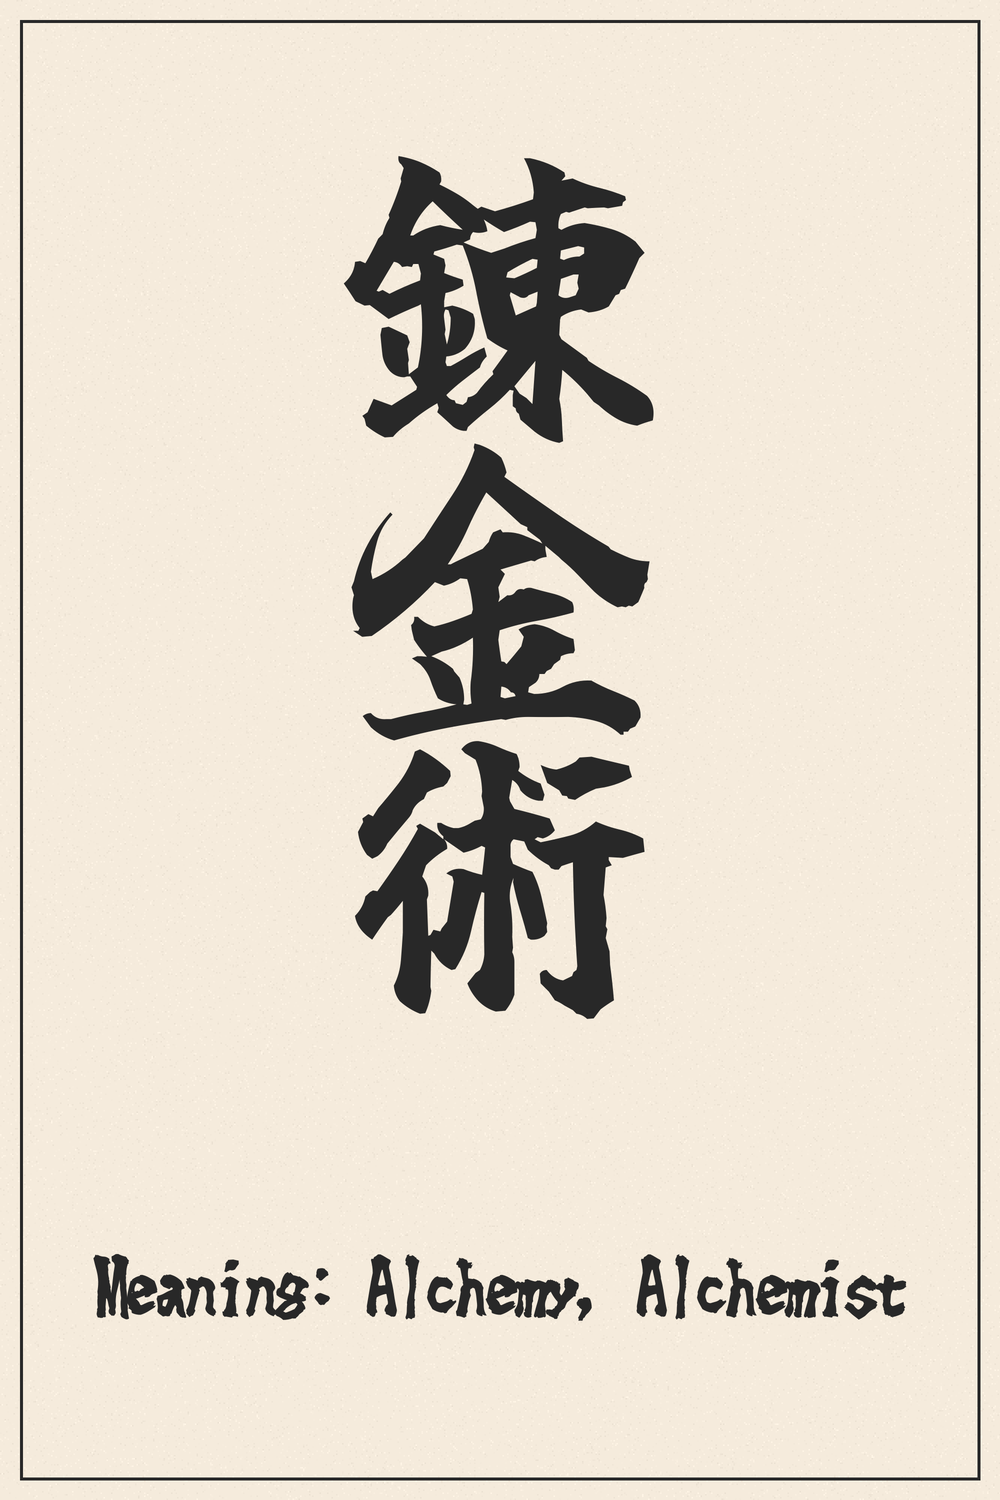 錬金術
Meaning: Alchemy, Alchemist